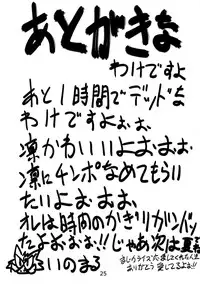 あとがきな
わけですよ
あと1時間でデッドな
わけですよぉぉ。
凛かわいいよぉぉぉ。
凛にチンポなめてもらい
たいよぉぉぉ。
オレは時間のかぎりガンバッ
たよぉぉぉ!!じゃあ次は夏
いのまる
ありがとう 愛してるよぉ!!
25